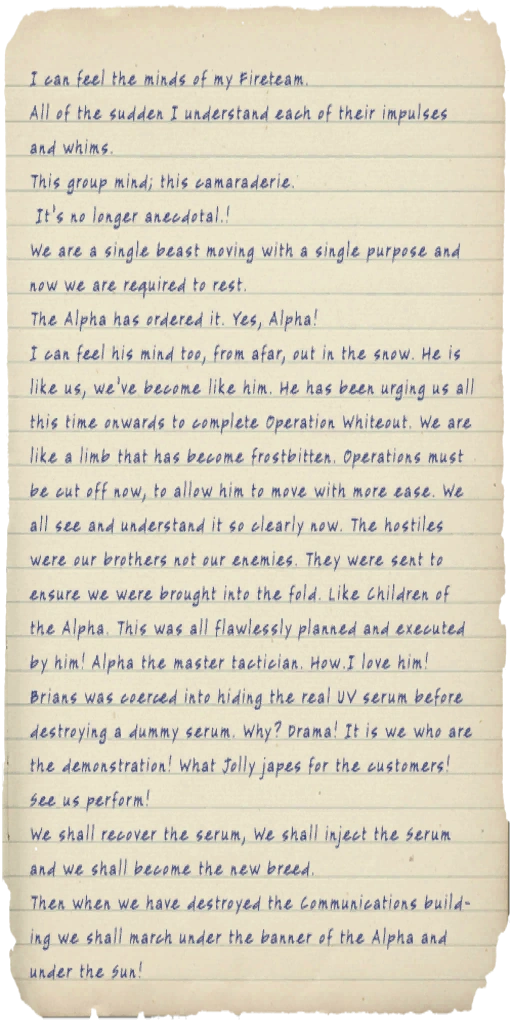 I can feel the minds of my Fireteam.
All of the sudden I understand each of their impulses
and whims.
This group mind; this camaraderie.
It's no longer anecdotal.!
We are a single beast moving with a single purpose and
now we are required to rest.
The Alpha has ordered it. Yes, Alpha!
I can feel his mind too, from afar, out in the snow. He is
like us, we've become like him. He has been urging us all
this time onwards to complete Operation Whiteout. We are
like a limb that has become frostbitten. Operations must
be cut off now, to allow him to move with more ease. We
all see and understand it so clearly now. The hostiles
were our brothers not our enemies. They were sent to
ensure we were brought into the fold. Like Children of
the Alpha. This was all flawlessly planned and executed
by him! Alpha the master tactician. How.I love him!
Brians was coerced into hiding the real UV serum before
destroying a dummy serum. Why? Drama! It is we who are
the demonstration! What Jolly japes for the customers!
See us perform!
We shall recover the serum, We shall inject the Serum
and we shall become the new breed.
Then when we have destroyed the Communications build-
ing we shall march under the banner of the Alpha and
under the Sun!